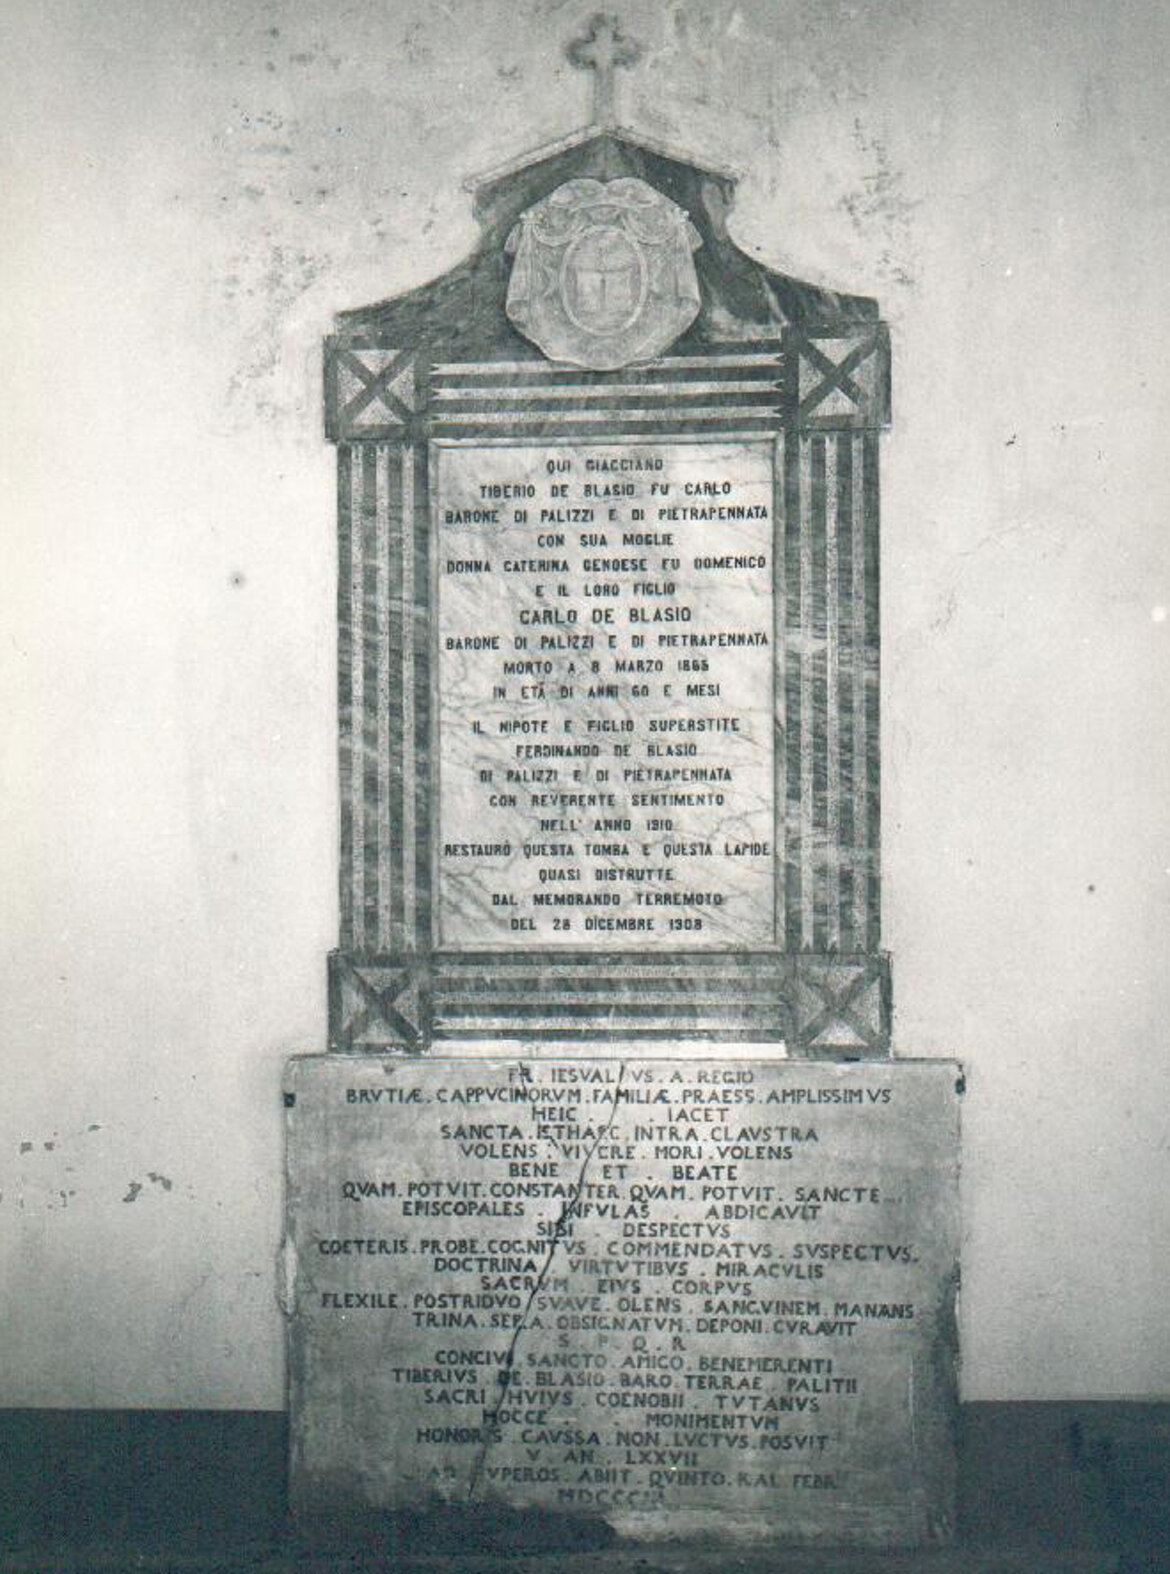 QUI GIACCIANO
TIBERIO DE BLASIO FU CARLO
BARONE DI PALIZZI E DI PIETRAPENNATA
CON SUA MOGLIE
DONNA CATERINA GENOESE FU DOMENICO
E IL LORO FIGLIO
CARLO DE BLASIO
BARONE DI PALIZZI E DI PIETRAPENNATA
MORTO A 8 MARZO 1865
IN ETÀ DI ANNI 60 E MESI
IL NIPOTE E FIGLIO SUPERSTITE
FERDINANDO DE BLASIO
DI PALIZZI E DI PIETRAPENNATA
CON REVERENTE SENTIMENTO
NELL' ANNO 1910
RESTAURÒ QUESTA TOMBA E QUESTA LAPIDE
QUASI DISTRUTTE
DAL MEMORANDO TERREMOTO
DEL 28 DICEMBRE 1908
FR. IESVALDVS . A . REGIO
BRVTIÆ . CAPPVCINORVM . FAMILIÆ . PRAESS . AMPLISSIMVS
HEIC . . IACET
SANCTA . ISTHAEC . INTRA . CLAVSTRA
VOLENS . VIVERE . MORI . VOLENS
BENE ET . BEATE
QVAM . POTVIT . CONSTANTER . QVAM . POTVIT . SANCTE
EPISCOPALES . INFVLAS . ABDICAVIT
SIBI . DESPECTVS
COETERIS . PROBE . COGNITVS . COMMENDATVS . SVSPECTVS .
DOCTRINA . VIRTVTIBVS . MIRACVLIS
SACRVM EIVS . CORPVS
FLEXILE . POSTRIDVO SVAVE . OLENS . SANGVINEM . MANANS
TRINA . SERA . OBSIGNATVM . DEPONI . CVRAVIT
S . P . Q . R
CONCIVI SANCTO . AMICO . BENEMERENTI
TIBERIVS . DE . BLASIO . BARO . TERRAE . PALITII
SACRI HVIVS . COENOBII . TVTANVS
HOCCE . . MONIMENTVM
HONORIS . CAVSSA . NON . LVCTVS . POSVIT
V . AN . LXXVII
AD SVPEROS . ABIIT . QVINTO . KAL FEBR